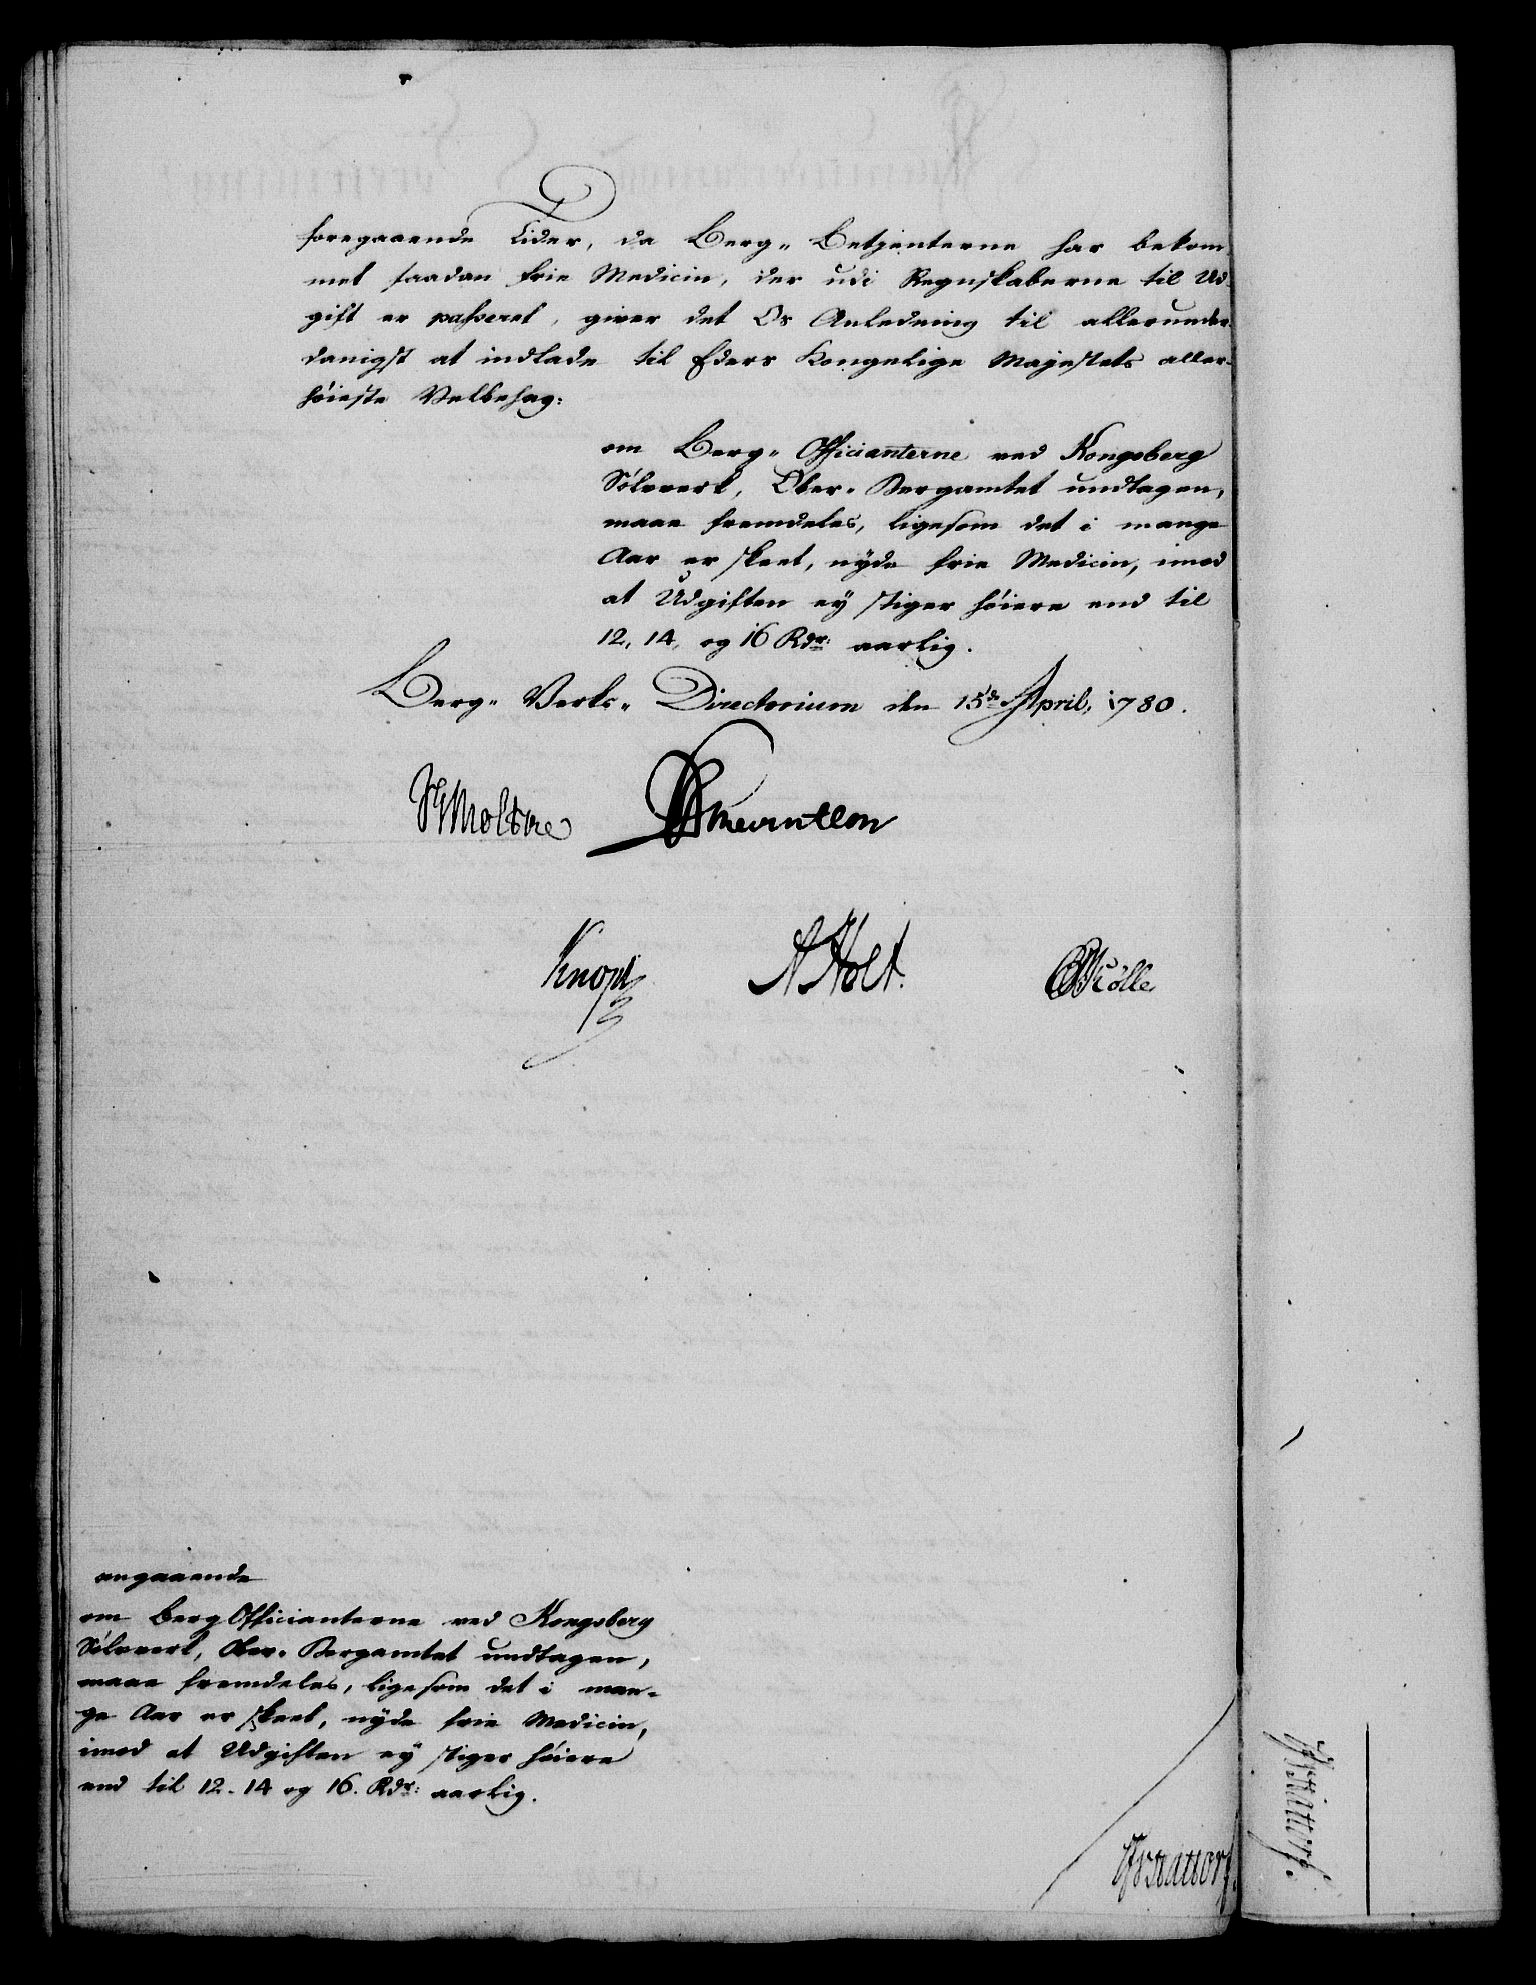 foregaaende Tider, da Berg„ Betjenterne har bekom„
met saadan frie Medicin, der udi Regnskaberne til Ud„
gift er passeret, giver det Os Anledning til allerunder„
danigst at indlade til Eders Kongelige Majestets aller„
høieste Velbehag:
om Berg„ Officianterne ved Kongsberg
Sølvverk, Ober„ Bergamtet undtagen,
maae fremdeles, ligesom det i mange
Aar er skeet, nyde frie Medicin, imod
at Udgiften ey stiger høiere end til
12, 14, og 16 Rdr: aarlig.
Berg„ Verks„ Directorium den 15de April, 1780.
Moltke
Knoph
A Holt.
angaaende
om Berg Officianterne ved Kongsberg
Sølvverk, Ober„ Bergamtet undtagen,
maae fremdeles, ligesom det i man„
ge Aar er skeet, nyde frie Medicin,
imod at Udgiften ey stiger høiere
end til 12. 14 og 16. Rdr: aarlig.